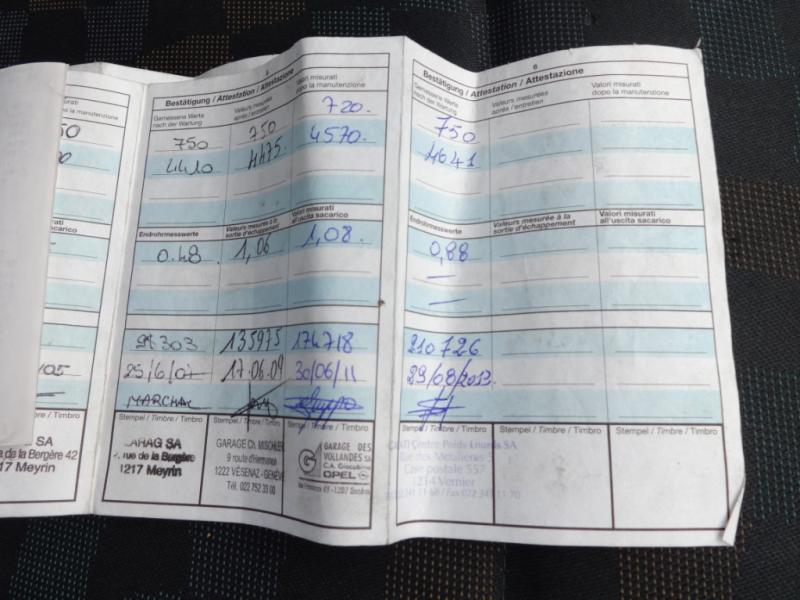 5
Bestätigung / Attestation / Attestazione
Gemessene Werte nach der Wartung
Valeurs mesurées après l'entretien
Valori misurati dopo la manutenzione
750 750 720.
4410 4475 4570.
Endrohrmesswerte
Valeurs mesurées à la sortie d'échappement
Valori misurati all'uscita sacarico
0.48 1,06 1,08.
303 135975 174718
25/6/07 17.06.09 30/06/11
MARCHAL
Stempel / Timbre / Timbro Stempel / Timbre / Timbro Stempel / Timbre / Timbro
SA
rue de la Bergère
1217 Meyrin
GARAGE D. MISCHLER
9 route d'Hermance
1222 VÉSENAZ - GENÈVE
Tél. 022 752 33 00
GARAGE DES
VOLLANDES SA
OPEL
6
Bestätigung / Attestation / Attestazione
Gemessene Werte nach der Wartung
Valeurs mesurées après l'entretien
Valori misurati dopo la manutenzione
750
4641
Endrohrmesswerte
Valeurs mesurée à la sortie d'échappement
Valori misurati all'uscita sacarico
0,88
—
—
210726
29/08/2013
Stempel / Timbre / Timbro Stempel / Timbre / Timbro Stempel / Timbre / Timbro
Centre Poids Lourds SA
Case postale 557
1214 Vernier
misurati
la manutenzione
50
misurati
sacarico
/05
/ Timbre / Timbro
SA
de la Bergère 42
17 Meyrin